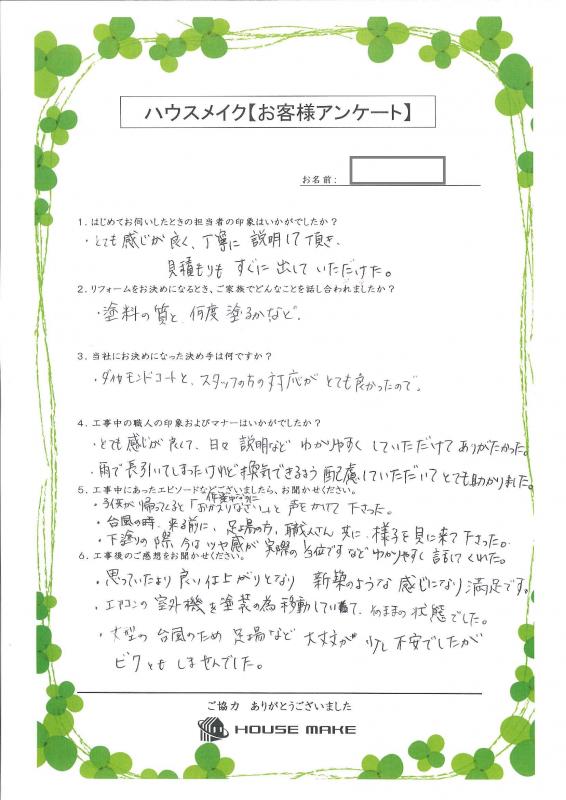 ハウスメイク【お客様アンケート】
お名前:
1.はじめてお伺いしたときの担当者の印象はいかがでしたか?
・とても感じが良く、丁寧に説明して頂き、
見積もりもすぐに出していただけた。
2.リフォームをお決めになるとき、ご家族でどんなことを話し合われましたか?
・塗料の質と、何度塗るかなど。
3.当社にお決めになった決め手は何ですか?
・ダイヤモンドコートと、スタッフの方の対応がとても良かったので。
4.工事中の職人の印象およびマナーはいかがでしたか?
・とても感じが良くて、日々説明などわかりやすくしていただけてありがたかった。
・雨で長引いてしまったけれど換気できるよう配慮していただいてとても助かりました。
5.工事中にあったエピソードなどございましたら、お聞かせください。
・子供が帰ってくると「おかえりなさい」と声をかけて下さった。
・台風の時、来る前に、足場の方、職人さん共に、様子を見に来て下さった。
・下塗りの際、今はツヤ感が実際の 位ですなどわかりやすく話してくれた。
6.工事後のご感想をお聞かせください。
・思っていたより良い仕上がりとなり 新築のような感じになり満足です。
・エアコンの室外機を塗装の為移動していて、そのままの状態でした。
・大型の台風のため足場など大丈夫か少し不安でしたが
ビクともしませんでした。
ご協力 ありがとうございました
HOUSE MAKE